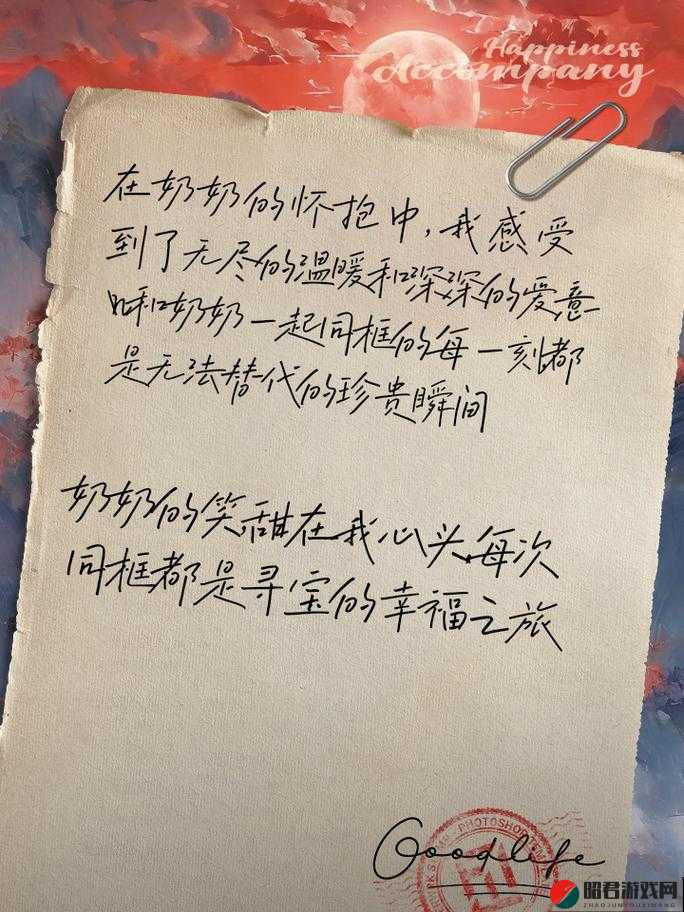 Happiness
Accompany
在奶奶的怀抱中,我感受
到了无尽的温暖和深深的爱意
和奶奶一起同框的每一刻都
是无法替代的珍贵瞬间
奶奶的笑甜在我心头,每次
同框都是寻宝的幸福之旅
PHOTOSHOP
Goodlife
昭君游戏网
ZHAOJUNYOUXIWANG